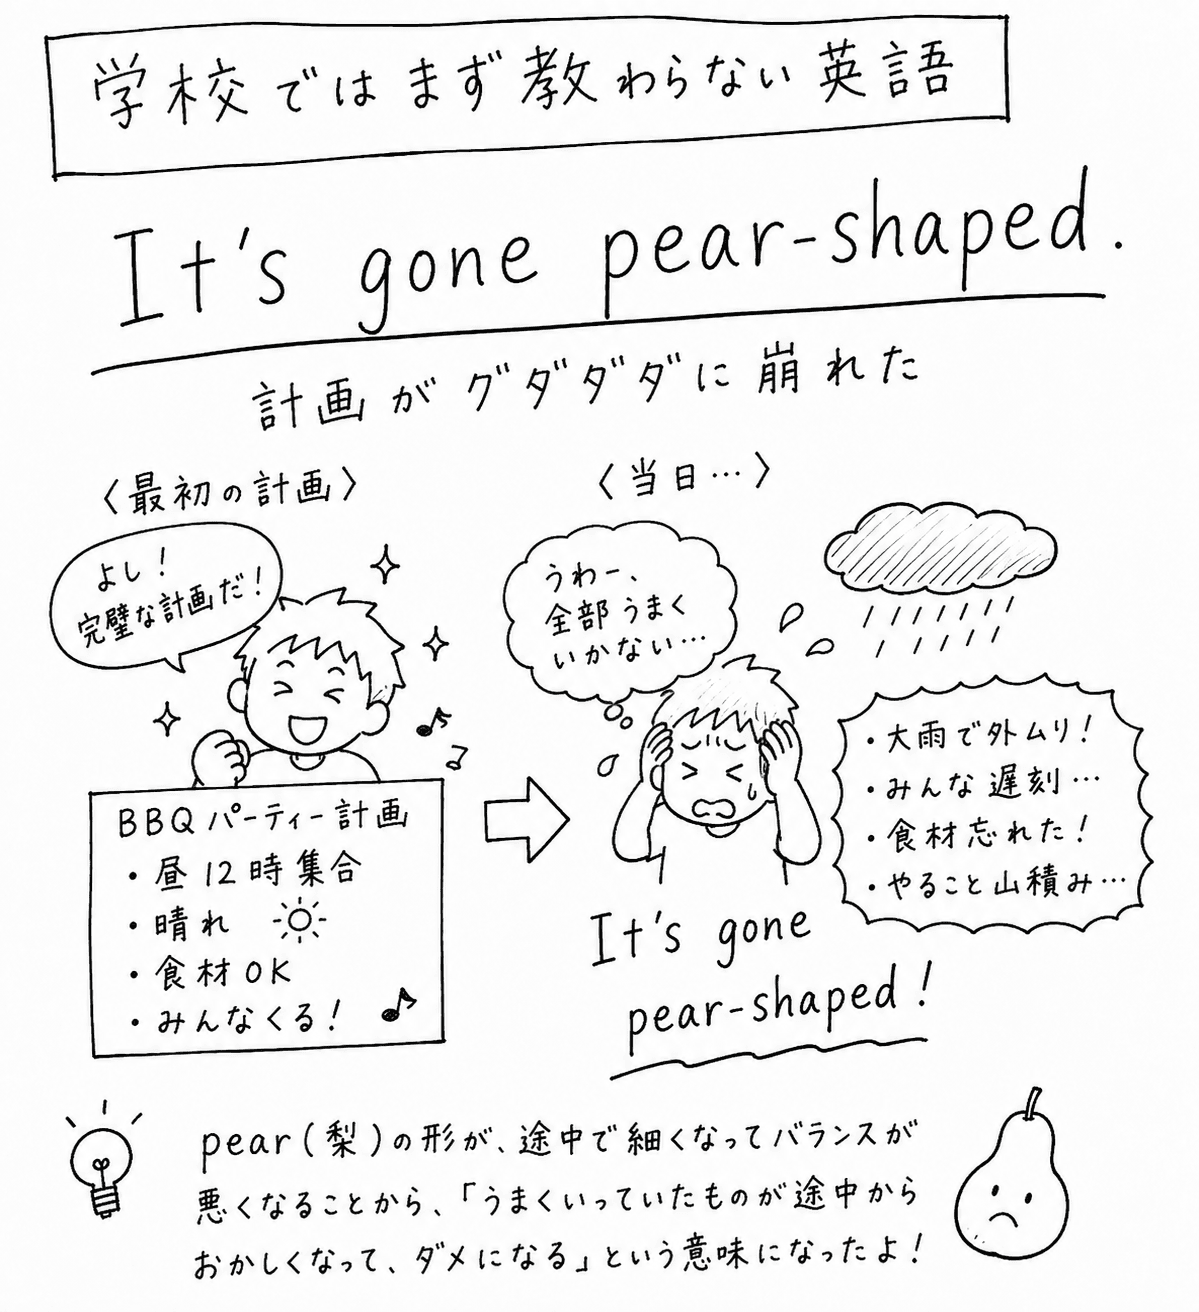 学校ではまず教わらない英語
It's gone pear-shaped.
計画がグダダダに崩れた
〈最初の計画〉
よし!
完璧な計画だ!
BBQパーティー計画
・昼12時集合
・晴れ
・食材OK
・みんなくる!
〈当日…〉
うわー、
全部うまく
いかない…
・大雨で外ムリ!
・みんな遅刻…
・食材忘れた!
・やること山積み…
It's gone
pear-shaped!
pear(梨)の形が、途中で細くなってバランスが
悪くなることから、「うまくいっていたものが途中から
おかしくなって、ダメになる」という意味になったよ!